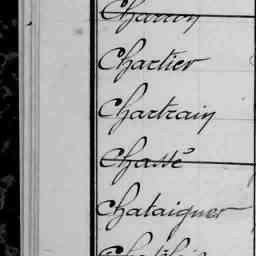 Charron
Chartier
Chartrain
Chassé
Chataigner